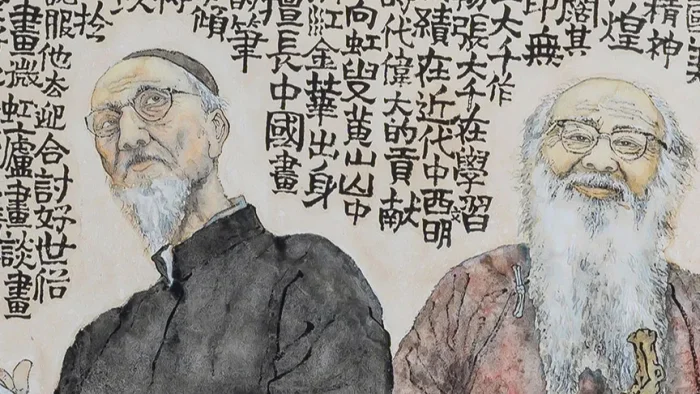 精神
煌
闊其
印無
大千作
張大千在學習
績在近代中西文明
時代偉大的貢献
向虹叟黄山山中
江金華出身
擅長中國畫
的筆
傾
服他去迎合討好世俗
畫微虹廬畫談畫